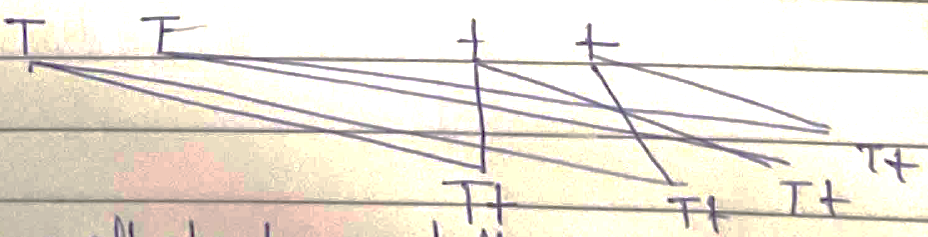 T T t t
Tt Tt Tt Tt